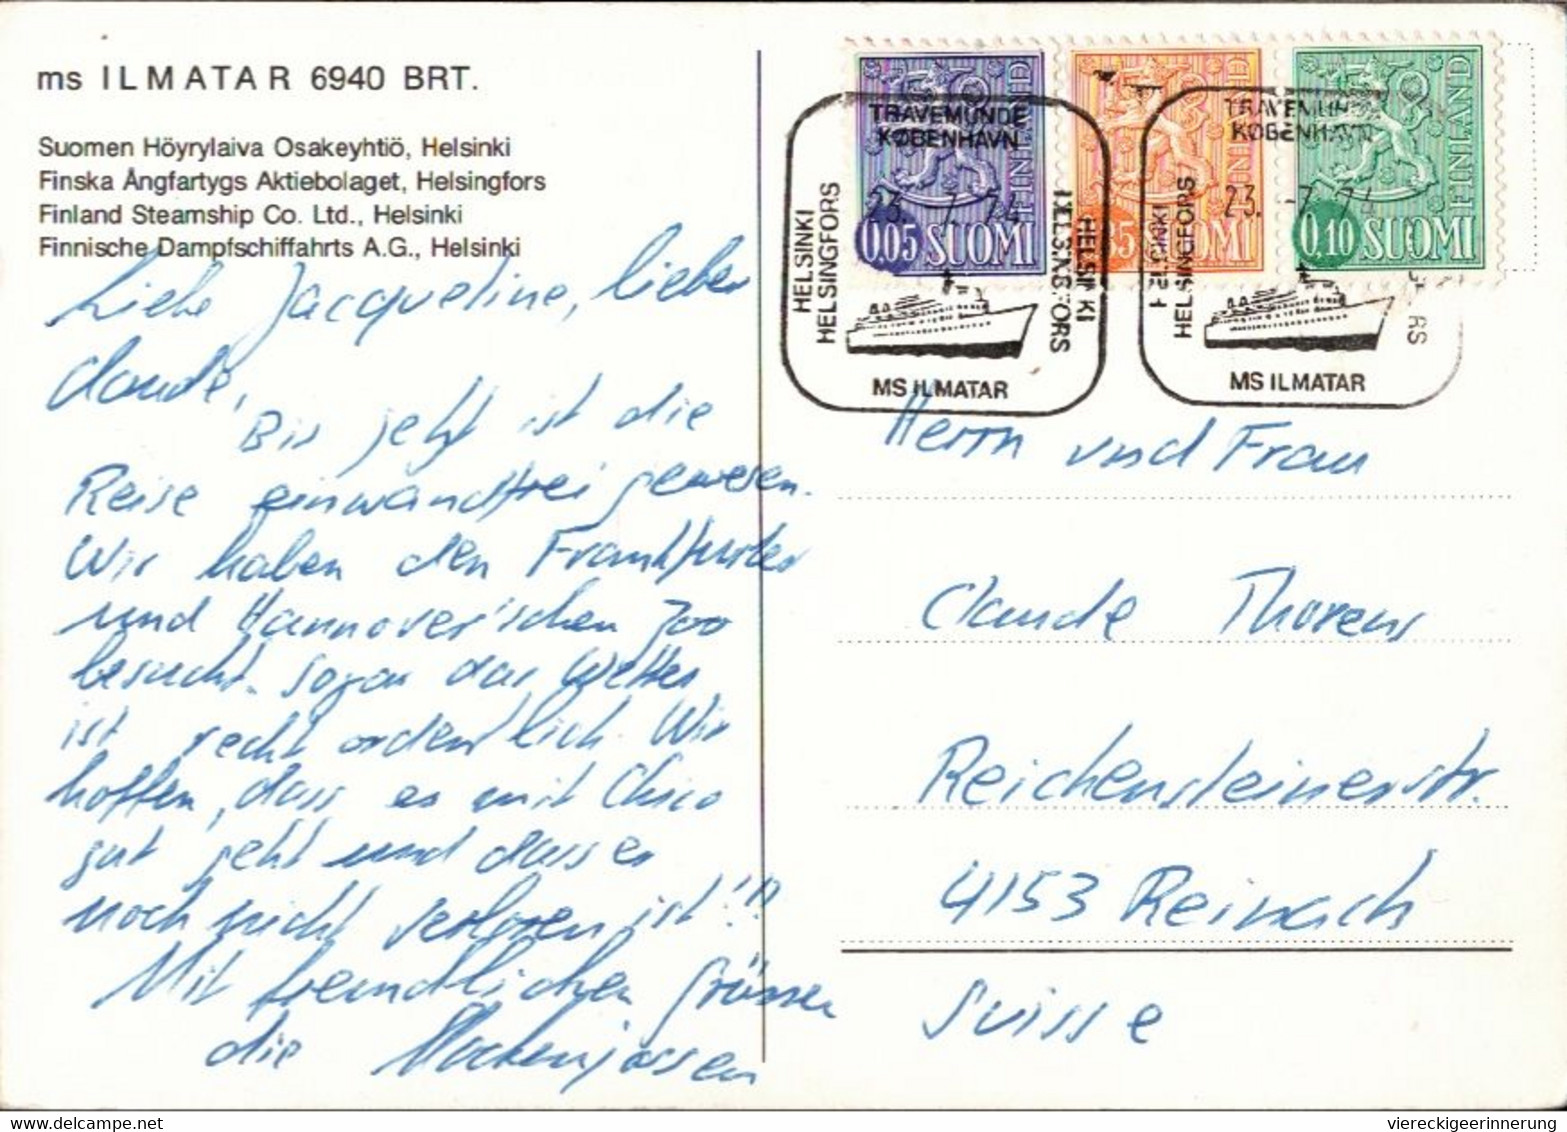 ms ILMATAR 6940 BRT.
Suomen Höyrylaiva Osakeyhtiö, Helsinki
Finska Ångfartygs Aktiebolaget, Helsingfors
Finland Steamship Co. Ltd., Helsinki
Finnische Dampfschiffahrts A.G., Helsinki
Liebe Jacqueline, lieber
Claude,
Bis jetzt ist die
Reise einwandfrei gewesen.
Wir haben den Frankfurter
und Hannover'schen Zoo
besucht. Sogar das Wetter
ist recht ordentlich. Wir
hoffen, dass es mit Chico
gut geht und dass er
noch nicht verloren ist!!!
Mit freundlichen Grüssen
die
TRAVEMUNDE
KØBENHAVN
23. 7. 74
HELSINKI
HELSINGFORS
HELSINKI
HELSINGFORS
MS ILMATAR
FINLAND
0.05 SUOMI
FINLAND
5 SUOMI
FINLAND
0.10 SUOMI
TRAVEMUN
KØBENHAVN
23. -7. 74
HELSINKI
HELSINGFORS
RS
MS ILMATAR
Herrn und Frau
Claude Thorens
Reichensteinerstr.
4153 Reinach
Suisse
viereckigeerinnerung